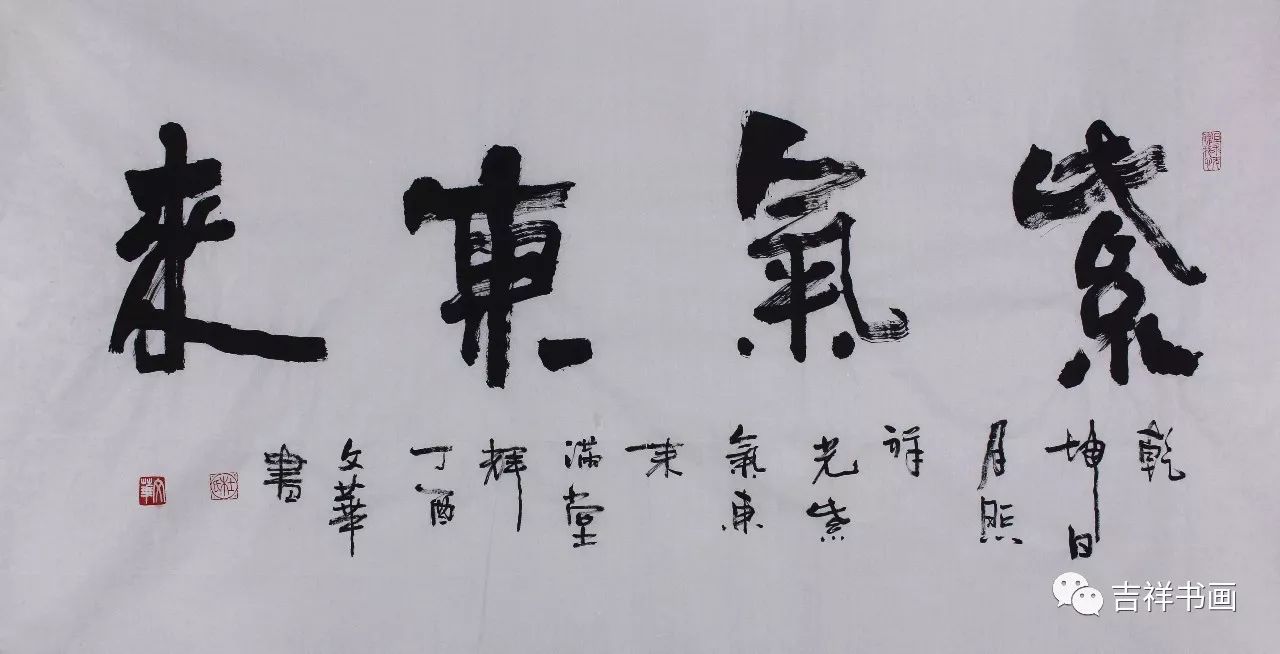 紫氣東来
乾
坤日
月照
祥
光紫
氣東
来
满堂
輝
丁酉
文華
書
文華
吉祥书画